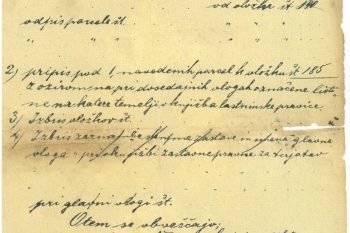 od vložka št 140
odpis parcele št.
" " " " "
2) pripis pod 1, navedenih parcel k vložku št 185
z ozirom na pri dosedajnih vlogah označene liste
na katere temelji vknjižba lastninske pravice
3) Izbris vložkov št
4) Izbris zaznambe skupne zastave in glavna
vloga pri vknjižbi zastavne pravice za terjatev
pri glavni vlogi št.
O tem se obveščajo;